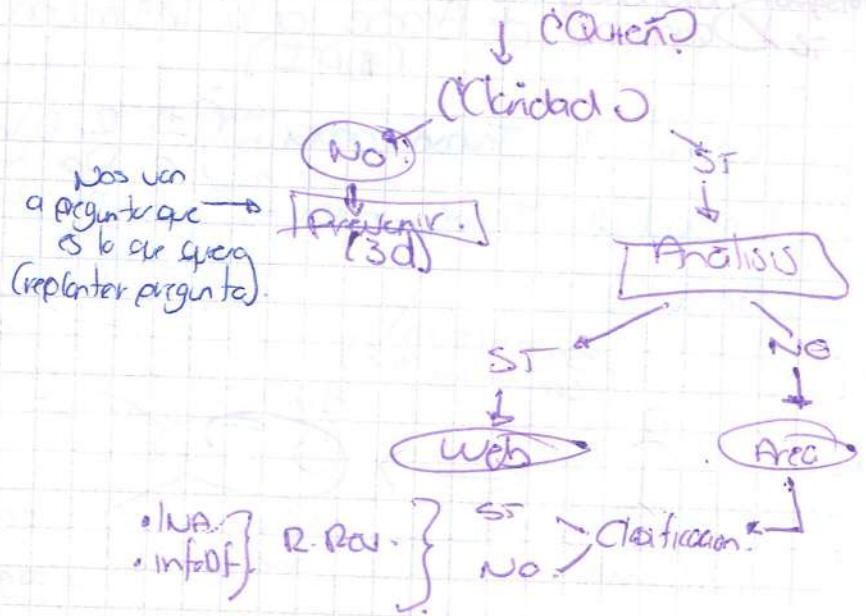 ¿Quién?
¿Claridad?
No
SI
Nos van
a preguntar que
es lo que quiera
(replantear pregunta).
Prevenir.
(3d)
Análisis
SI
NO
Web
Area
• INA
• InfoDf
R. Rev.
SI
NO
Clasificación.